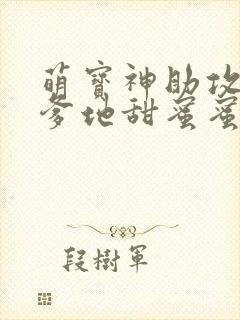 萌寶神助攻
爹地甜蜜蜜
段樹軍